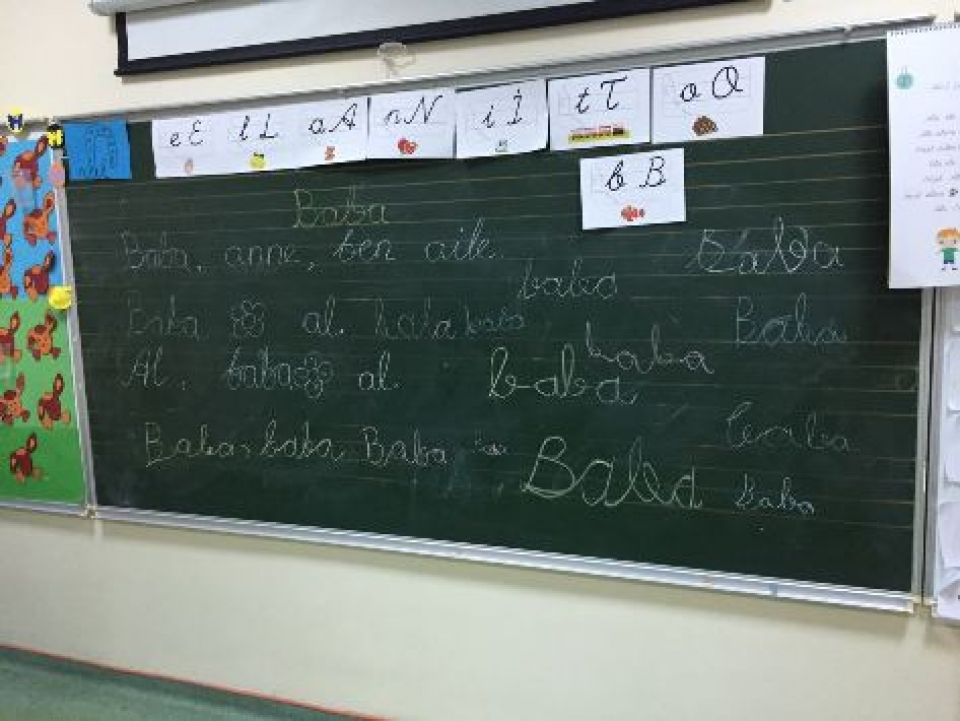 e E l L a A n N i İ t T o O
b B
Baba
Baba, anne, ben aile. Baba
baba
Baba al. baba Baba
baba
Al, baba al. baba
baba
Baba, baba Baba
Baba baba